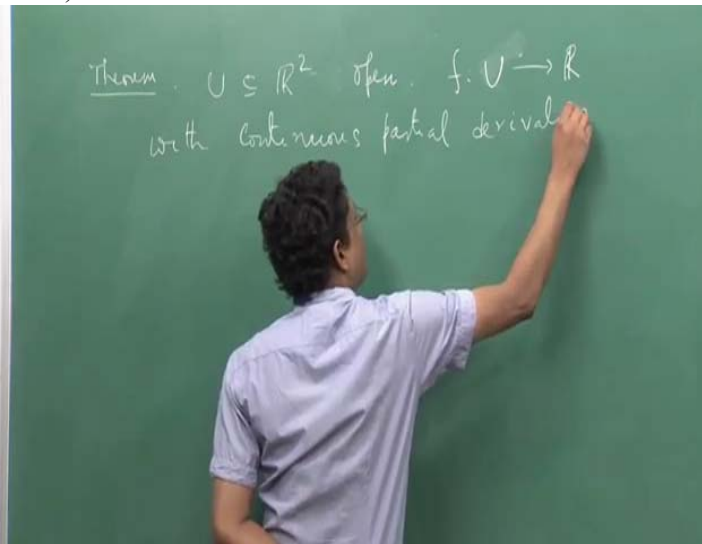 Theorem. U ⊆ ℝ² open. f: U → ℝ
with continuous partial derivat